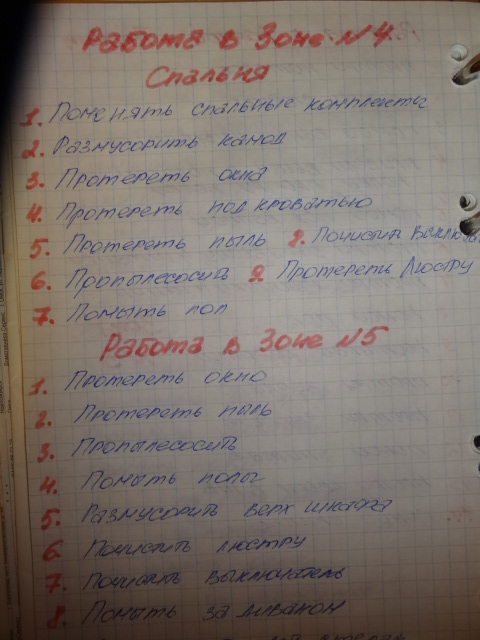 Работа в Зоне №4
Спальня
1. Поменять спальные комплекты
2. Размусорить камод
3. Протереть окна
4. Протереть под кроватью
5. Протереть пыль 8. Почистить
6. Пропылесосить 9. Протереть Люстру
7. Помыть пол
Работа в Зоне №5
1. Протереть окно
2. Протереть пыль
3. Пропылесосить
4. Помыть полы
5. Размусорить верх шкафа
6. Почистить люстру
7. Почистить выключатель
8. Помыть за диваном